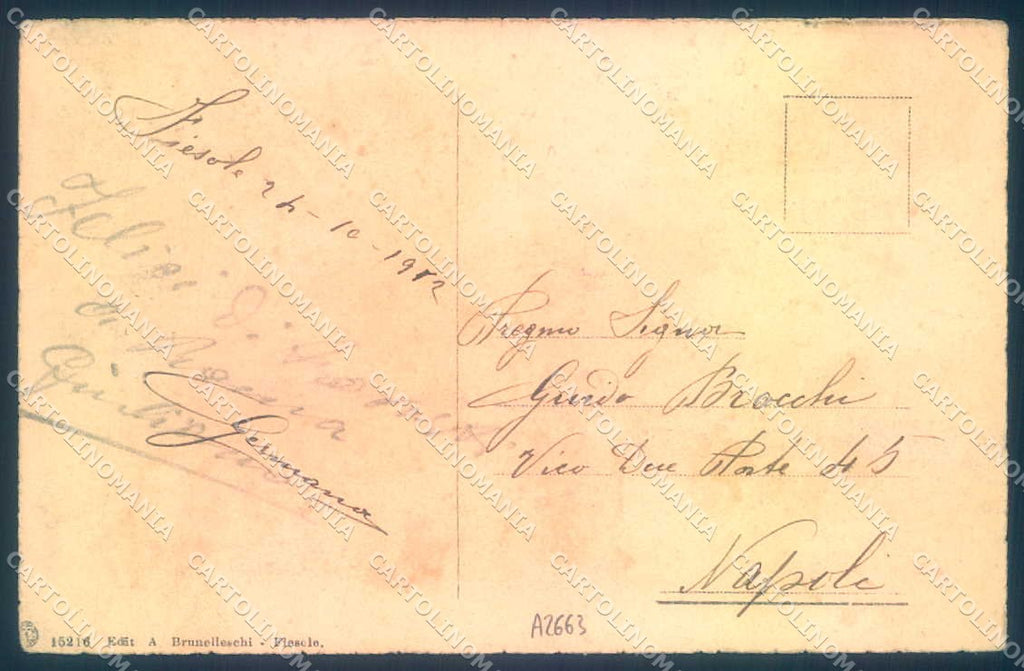 Fiesole 24-10-1912
Germana
Pregmo Signor
Guido Bracchi
Vico Due Porte 45
Napoli
15216 Edit A Brunelleschi - Fiesole.
A2663
CARTOLINOMANIA